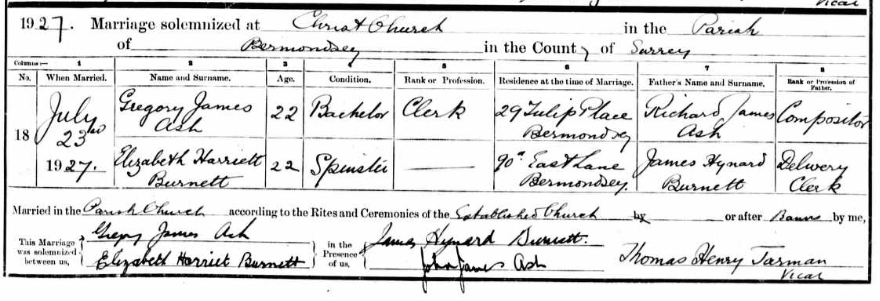 Vicar
1927. Marriage solemnized at Christ Church in the Parish
of Bermondsey in the County of Surrey
Columns:— 1 2 3 4 5 6 7 8
No. When Married. Name and Surname. Age. Condition. Rank or Profession. Residence at the time of Marriage. Father's Name and Surname. Rank or Profession of Father.
18 July 23rd 1927. Gregory James Ash 22 Bachelor Clerk 29 Tulip Place Bermondsey Richard James Ash Compositor
Elizabeth Harriett Burnett 22 Spinster 90a East Lane Bermondsey. James Hynard Burnett Delivery Clerk
Married in the Parish Church according to the Rites and Ceremonies of the Established Church by or after Banns by me,
This Marriage was solemnized between us, Gregory James Ash in the Presence of us, James Hynard Burnett.
Elizabeth Harriet Burnett John James Ash Thomas Henry Tarman
Vicar